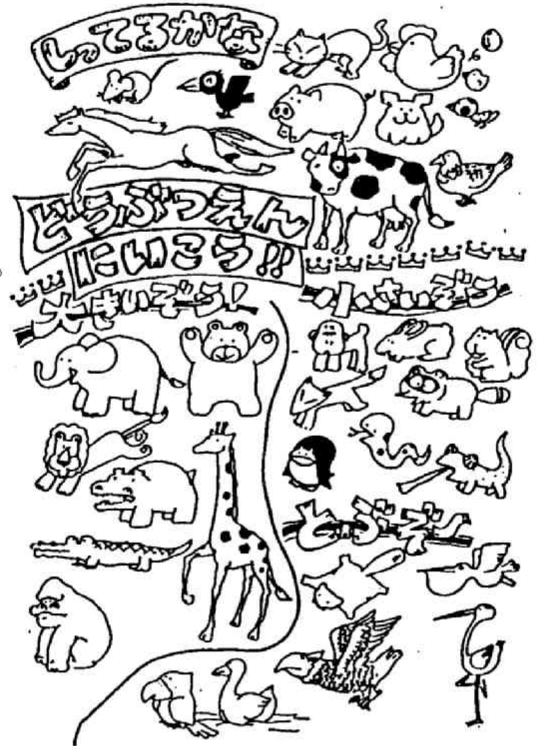 しってるかな
どうぶつえん
にいこう!!
大きいぞう!
小さいぞう
とぶぞ